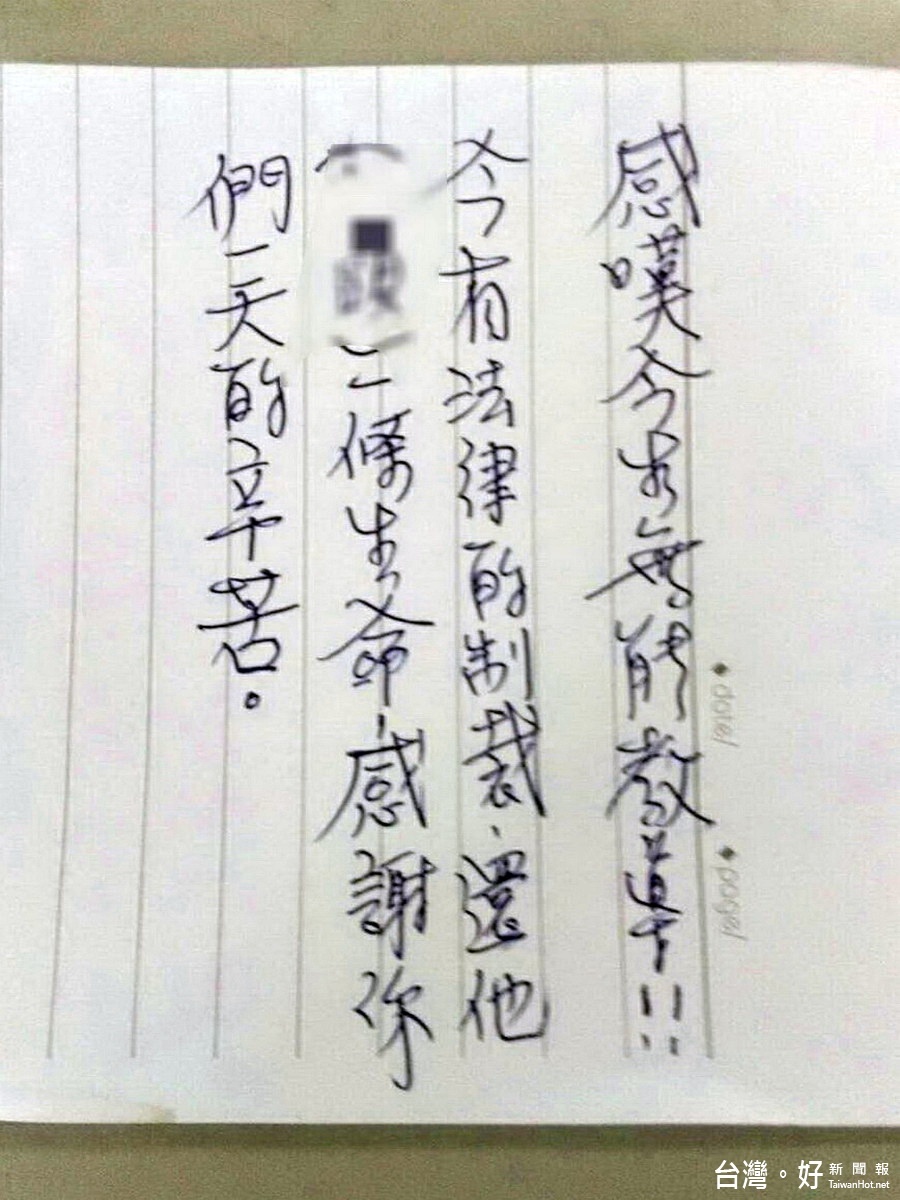 感嘆今者無能教導!!
今有法律的制裁、還他
(
)一條生命,感謝你
們一天的辛苦。
date/
page/
台灣。好新聞報
TaiwanHot.net